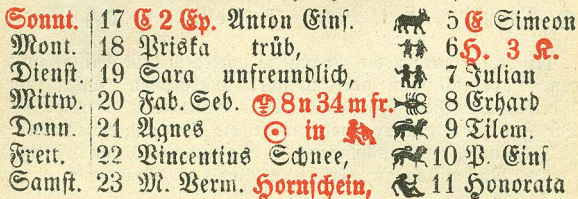 Sonnt. 17 C 2 Ep. Anton Eins. 5 E Simeon
Mont. 18 Priska trüb, 6 H. 3 K.
Dienst. 19 Sara unfreundlich, 7 Julian
Mittw. 20 Fab. Seb. 8 n 34 m fr. 8 Erhard
Donn. 21 Agnes ☉ in 9 Tilem.
Freit. 22 Vincentius Schnee, 10 P. Eins
Samst. 23 M. Verm. Hornschein, 11 Honorata